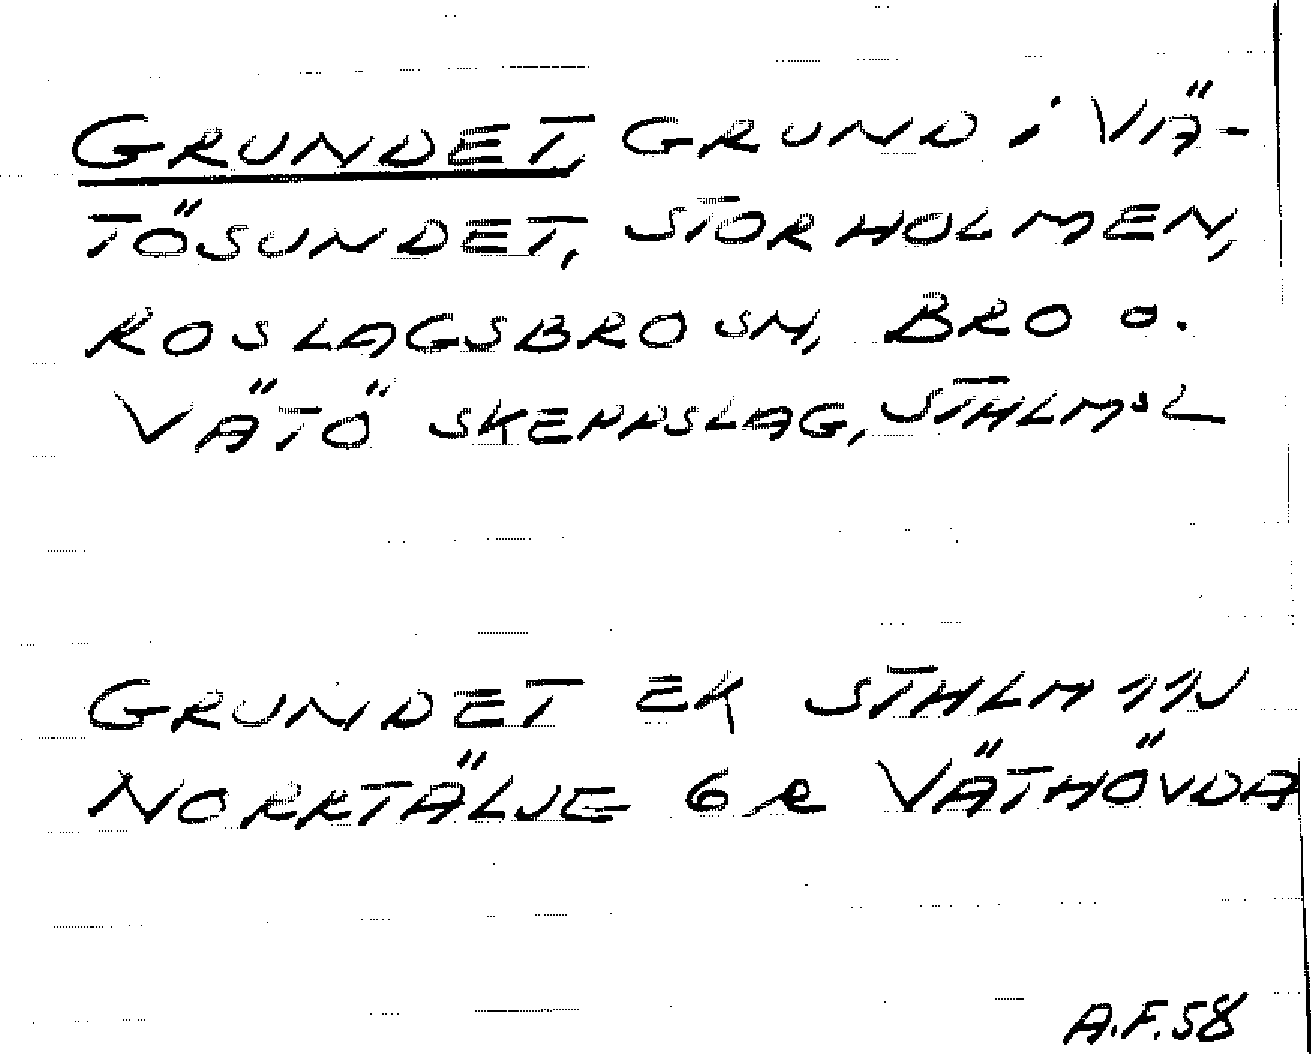 GRUNDET, GRUND i VÄ-
TÖSUNDET, STORHOLMEN,
ROSLAGSBRO SN, BRO O.
VÄTÖ SKEPPSLAG, STHLMSL
GRUNDET EK STHLM 11N
NORRTÄLJE 6 R VÄTHÖVDA
A.F.58